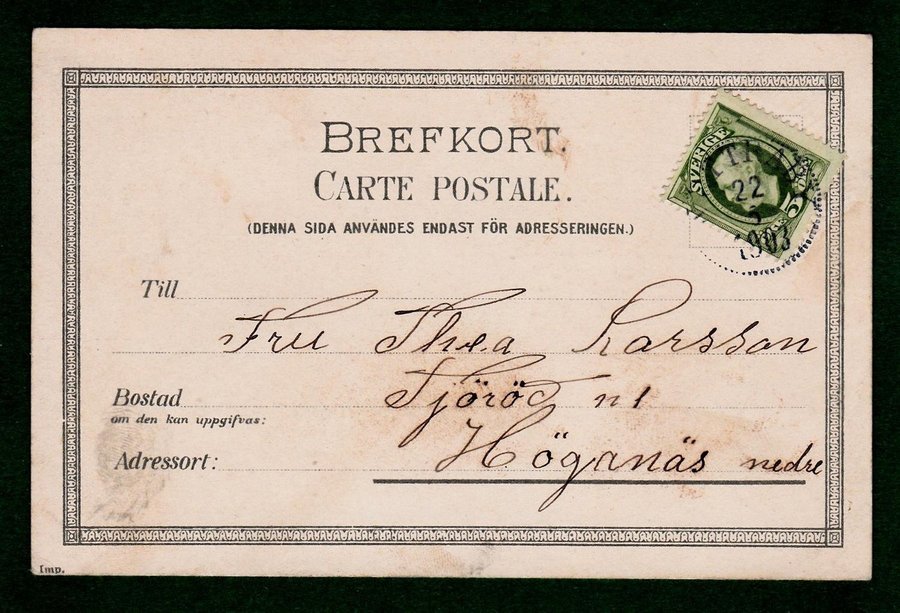 BREFKORT.
CARTE POSTALE.
(DENNA SIDA ANVÄNDES ENDAST FÖR ADRESSERINGEN.)
SVERIGE
5
22
1903
Till
Fru Thea Larsson
Bostad Fjöröd n1
om den kan uppgifvas:
Adressort: Höganäs nedre
Imp.